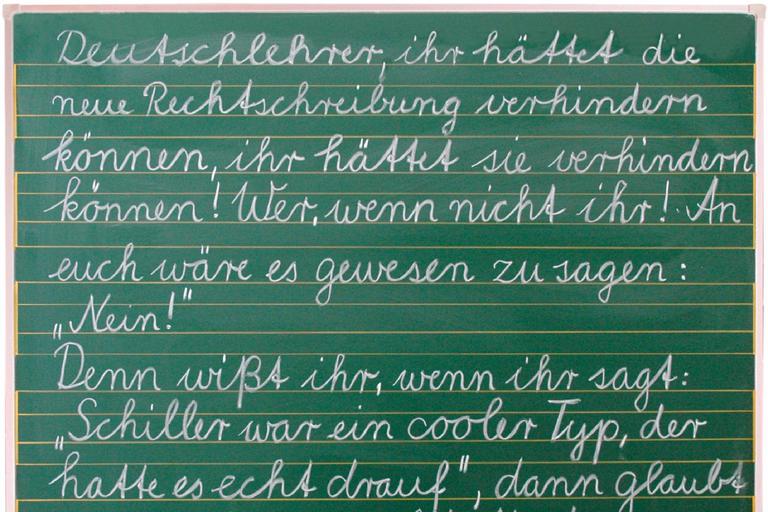 Deutschlehrer, ihr hättet die
neue Rechtschreibung verhindern
können, ihr hättet sie verhindern
können! Wer, wenn nicht ihr! An
euch wäre es gewesen zu sagen:
„Nein!"
Denn wißt ihr, wenn ihr sagt:
„Schiller war ein cooler Typ, der
hatte es echt drauf", dann glaubt